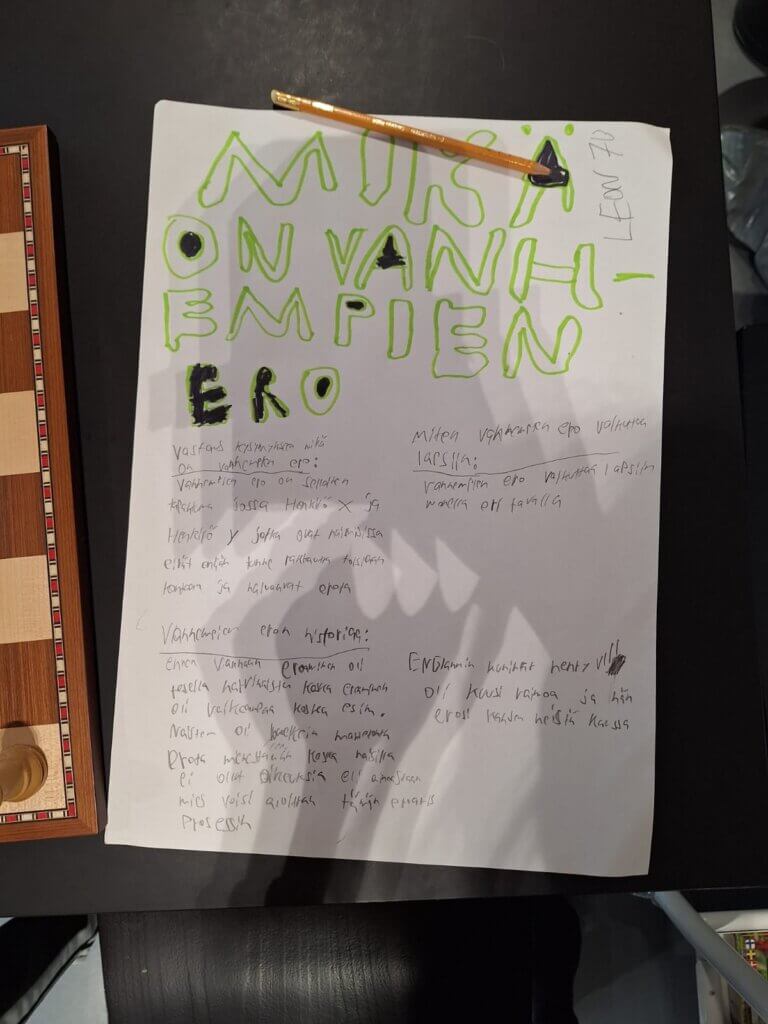 MIKÄ
LEON 7D
ON VANH-
EMPIEN
ERO
Vastaus kysymykseen mikä
on vanhempien ero:
Vanhempien ero on sellainen
tapahtuma jossa Henkilö X ja
Henkilö Y jotka ovat naimisissa
eivät enään tunne rakkautta toisiaan
kohtaan ja haluavat erota
Miten vanhempien ero vaikuttaa
lapsiin:
vanhempien ero vaikuttaa lapsiin
monella eri tavalla
Vanhempien eron historiaa:
ennen vanhaan eroaminen oli
todella harvinaista koska eroaminen
oli vaikeampaa koska esim.
Naisten oli
erota miehestään koska naisilla
ei ollut oikeuksia eli ainoastaan
mies voisi aloittaa tämän
prosessin
ENGlannin kuningas henry VIII
oli kuusi vaimoa ja hän
erosi kahden heistä kanssa